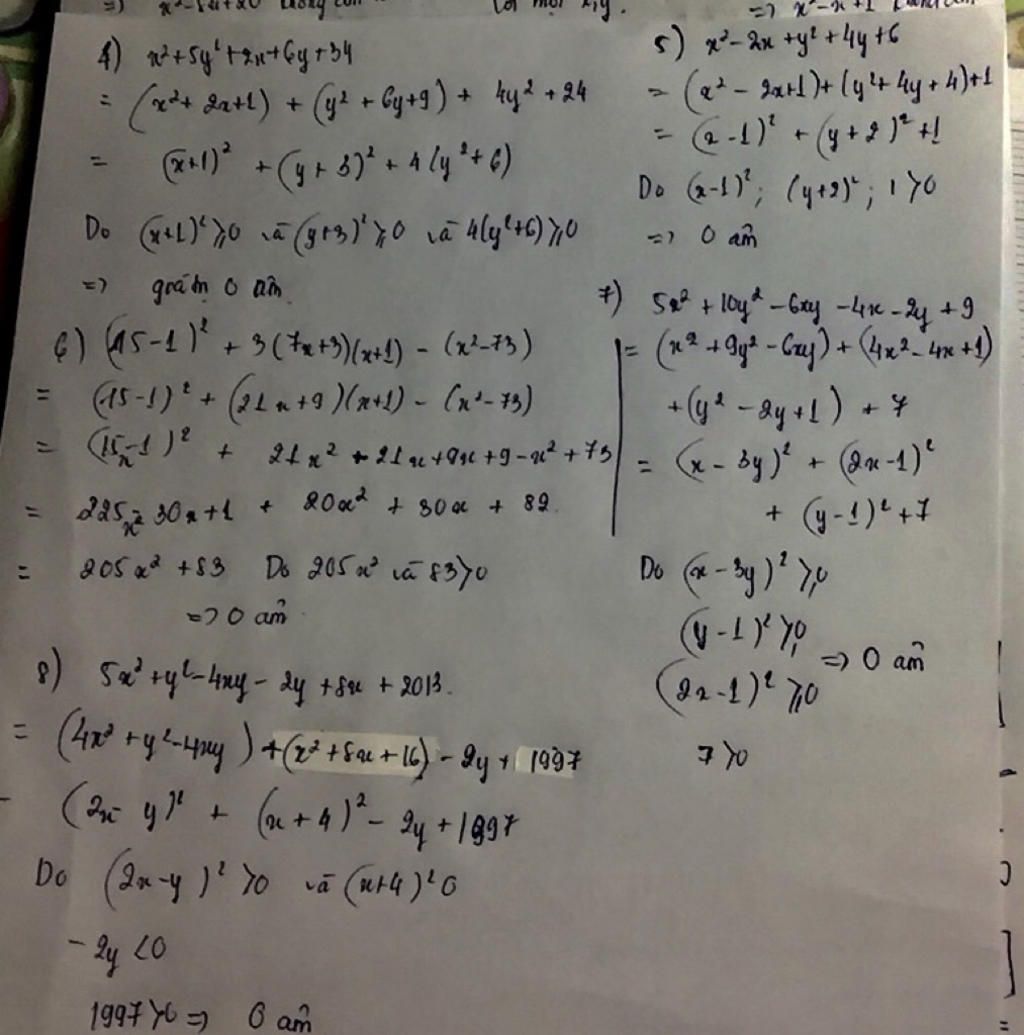 4) x² + 5y² + 2x + 6y + 34
= (x² + 2x + 1) + (y² + 6y + 9) + 4y² + 24
= (x+1)² + (y + 3)² + 4(y² + 6)
Do (x+1)² ≥ 0 và (y+3)² ≥ 0 và 4(y²+6) ≥ 0
=> 0 âm
5) x² - 2x + y² + 4y + 6
= (x² - 2x + 1) + (y² + 4y + 4) + 1
= (x - 1)² + (y + 2)² + 1
Do (x-1)² ; (y+2)² ; 1 > 0
=> 0 âm
6) (15-1)² + 3(7x+3)(x+1) - (x²-73)
= (15-1)² + (21x+9)(x+1) - (x²-73)
= (15x-1)² + 21x² + 21x + 9x + 9 - x² + 73
= 225x² - 30x + 1 + 20x² + 30x + 82
= 205x² + 83 Do 205x² và 83 > 0
=> 0 âm
7) 5x² + 10y² - 6xy - 4x - 2y + 9
= (x² + 9y² - 6xy) + (4x² - 4x + 1)
+ (y² - 2y + 1) + 7
= (x - 3y)² + (2x - 1)²
+ (y - 1)² + 7
Do (x - 3y)² ≥ 0
(y - 1)² ≥ 0
=> 0 âm
(2x - 1)² ≥ 0
7 > 0
8) 5x² + y² - 4xy - 2y + 8x + 2013.
= (4x² + y² - 4xy) + (x² + 8x + 16) - 2y + 1997
- (2x - y)² + (x + 4)² - 2y + 1997
Do (2x - y)² > 0 và (x+4)² 0
- 2y < 0
1997 > 0 => 0 âm